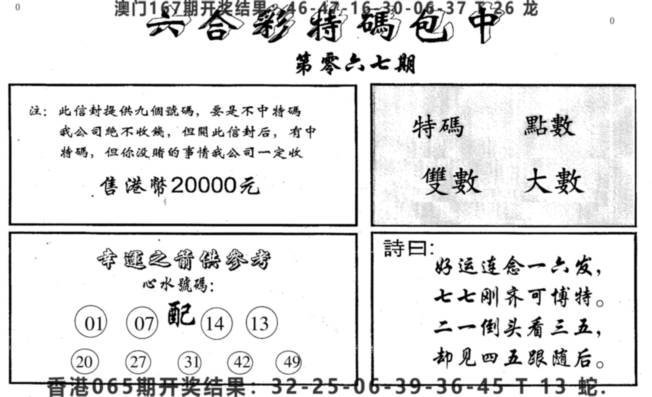 澳门167期开奖结果：46-47-16-30-06-37 T 26 龙
六合彩特碼包中
第零六七期
注：此信封提供九個號碼，要是不中特碼
我公司绝不收錢，但開此信封后，有中
特碼，但你没賭的事情我公司一定收
售港幣20000元
特碼 點數
雙數 大數
幸運之箭供參考
心水號碼：
01 07 配 14 13
20 27 31 42 49
詩曰：
好运连念一六发，
七七刚齐可博特。
二一倒头看三五，
却见四五跟随后。
香港065期开奖结果：32-25-06-39-36-45 T 13 蛇.